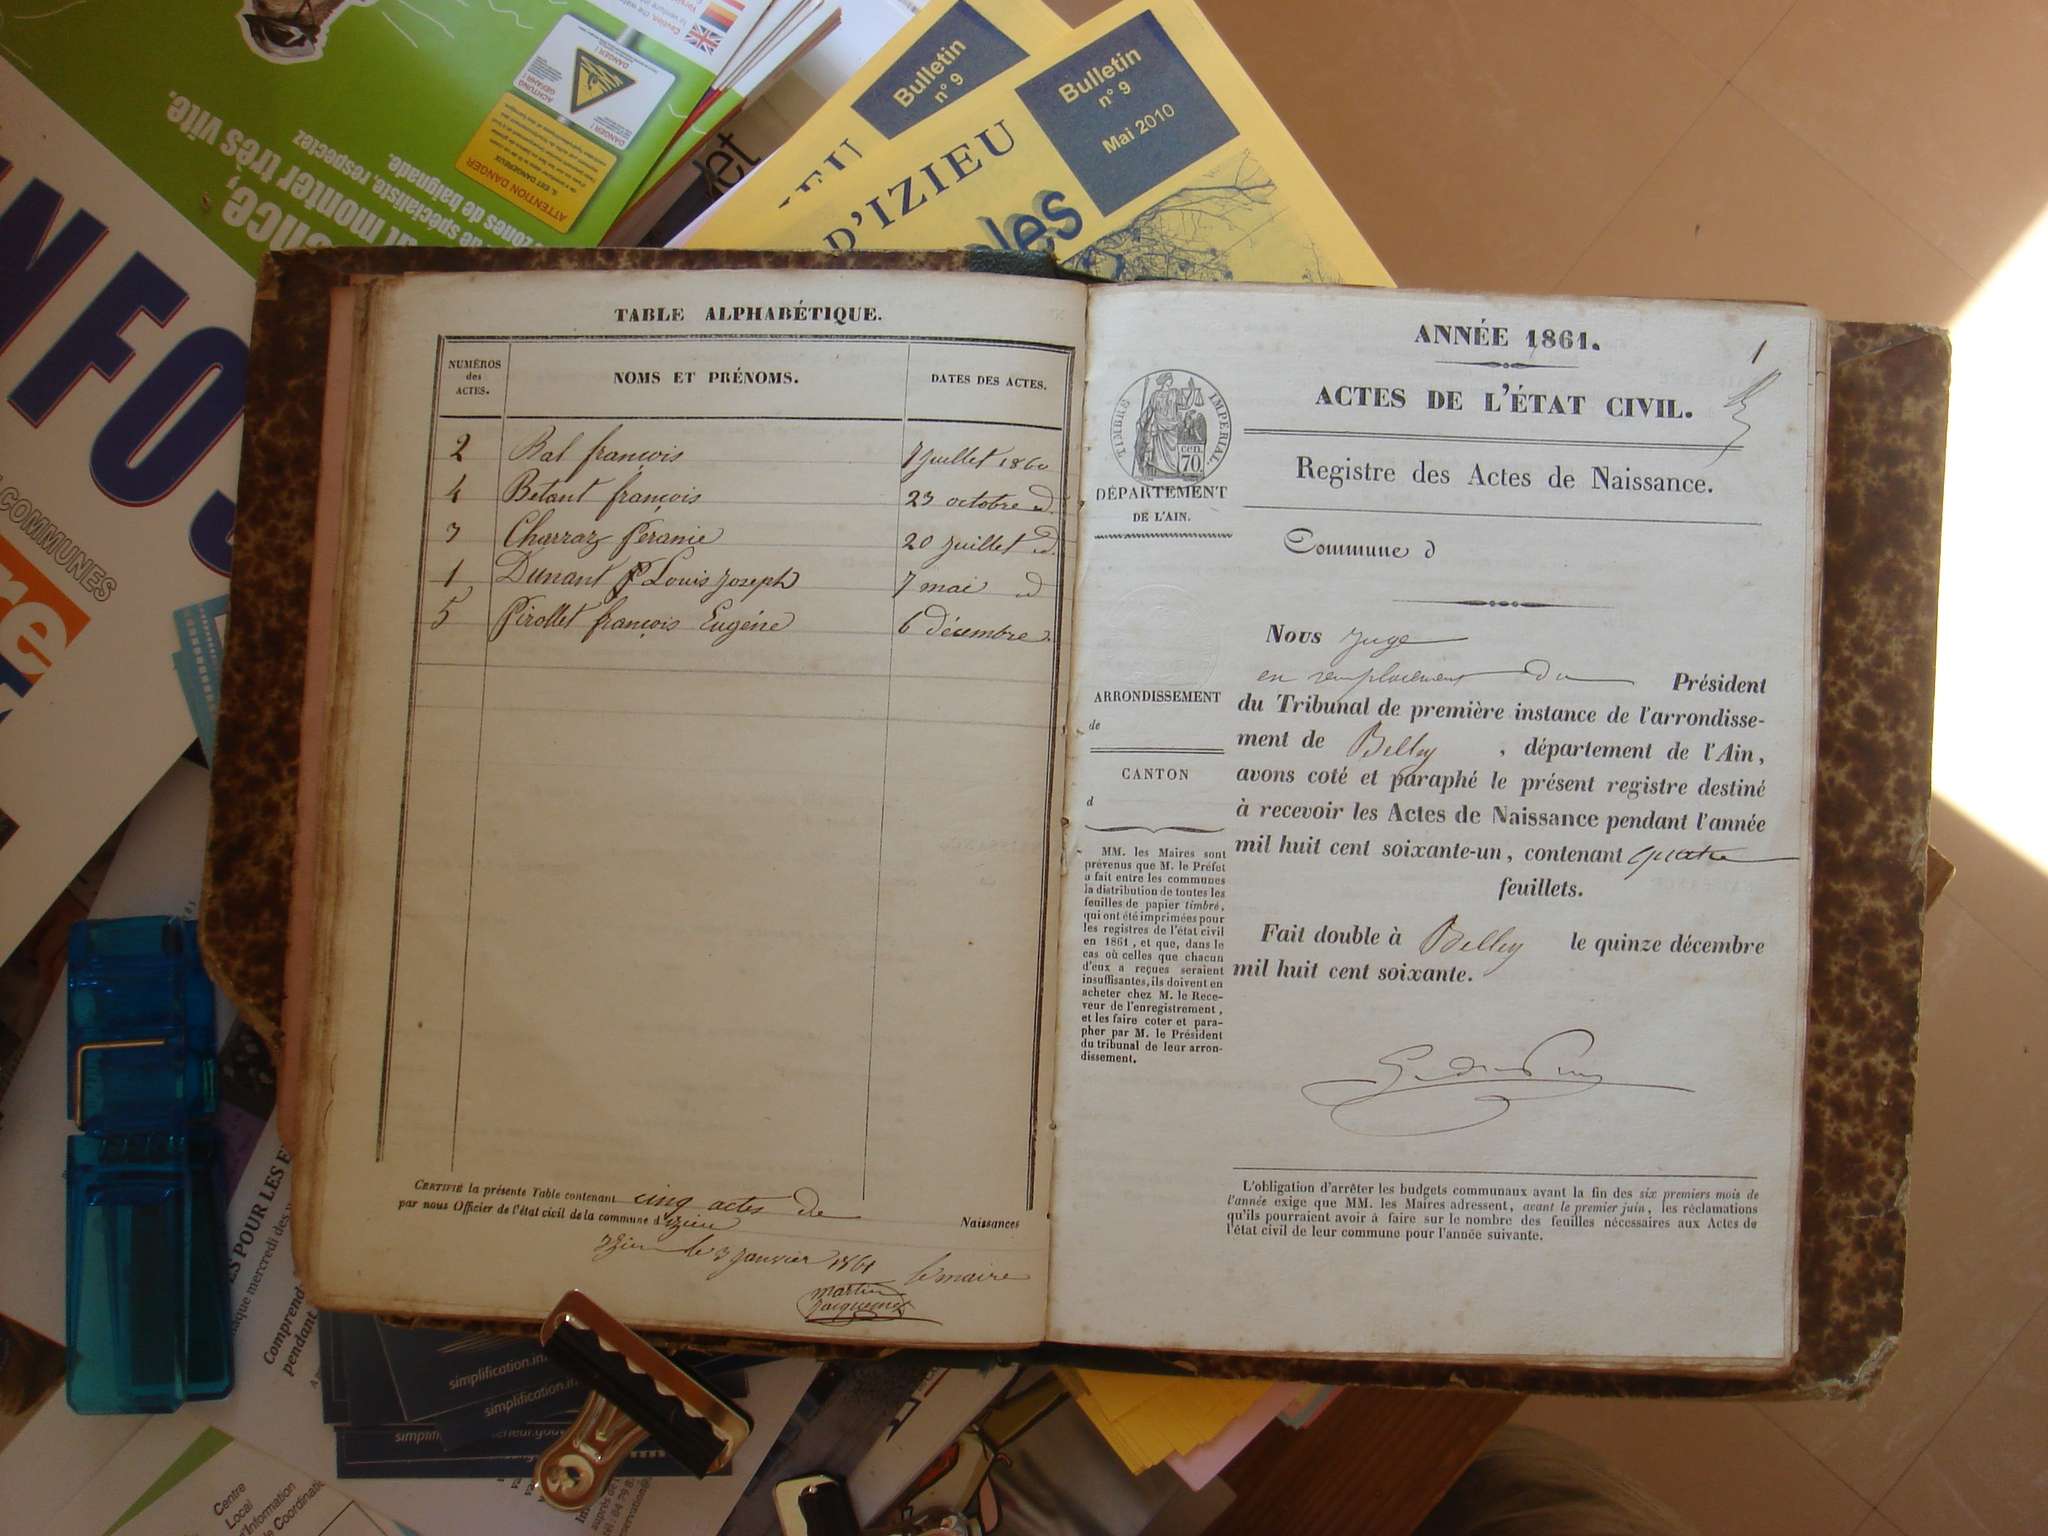 TABLE ALPHABÉTIQUE.
NUMÉROS des ACTES.
NOMS ET PRÉNOMS.
DATES DES ACTES.
2 Bal françois 7 juillet 1860
4 Betant françois 23 octobre d.
3 Charraz Péranie 20 juillet d.
1 Dunant P Louis Joseph 7 mai d
5 Pirollet françois Eugène 6 décembre d.
CERTIFIÉ la présente Table contenant cinq actes de Naissances
par nous Officier de l'état civil de la commune d'Izieu
Izieu le 3 janvier 1861 le maire
martin
Jacquemet
ANNÉE 1861.
1
ACTES DE L'ÉTAT CIVIL.
Registre des Actes de Naissance.
TIMBRE IMPÉRIAL.
CEN. 70
DÉPARTEMENT
DE L'AIN.
Commune d
Nous Juge
en remplacement du Président
du Tribunal de première instance de l'arrondisse-
ment de Belley, département de l'Ain,
avons coté et paraphé le présent registre destiné
à recevoir les Actes de Naissance pendant l'année
mil huit cent soixante-un, contenant quatre
feuillets.
Fait double à Belley le quinze décembre
mil huit cent soixante.
ARRONDISSEMENT
de
CANTON
d
MM. les Maires sont
prévenus que M. le Préfet
a fait entre les communes
la distribution de toutes les
feuilles de papier timbré,
qui ont été imprimées pour
les registres de l'état civil
en 1861, et que, dans le
cas où celles que chacun
d'eux a reçues seraient
insuffisantes, ils doivent en
acheter chez M. le Rece-
veur de l'enregistrement,
et les faire coter et para-
pher par M. le Président
du tribunal de leur arron-
dissement.
L'obligation d'arrêter les budgets communaux avant la fin des six premiers mois de
l'année exige que MM. les Maires adressent, avant le premier juin, les réclamations
qu'ils pourraient avoir à faire sur le nombre des feuilles nécessaires aux Actes de
l'état civil de leur commune pour l'année suivante.
Bulletin
n° 9
Bulletin
n° 9
Mai 2010
D'IZIEU
les
NFOS
COMMUNES
monter très vite.
zones de baignade.
de spécialiste, respectez
ATTENTION DANGER
IL EST DANGEREUX
DANGER!
ACHTUNG
GEFAHR!
S POUR LES E
aque mercredi des
Comprend
pendant
simplification.in
simplification.in
simplifi
Centre
Local
d'Information
de Coordinatio